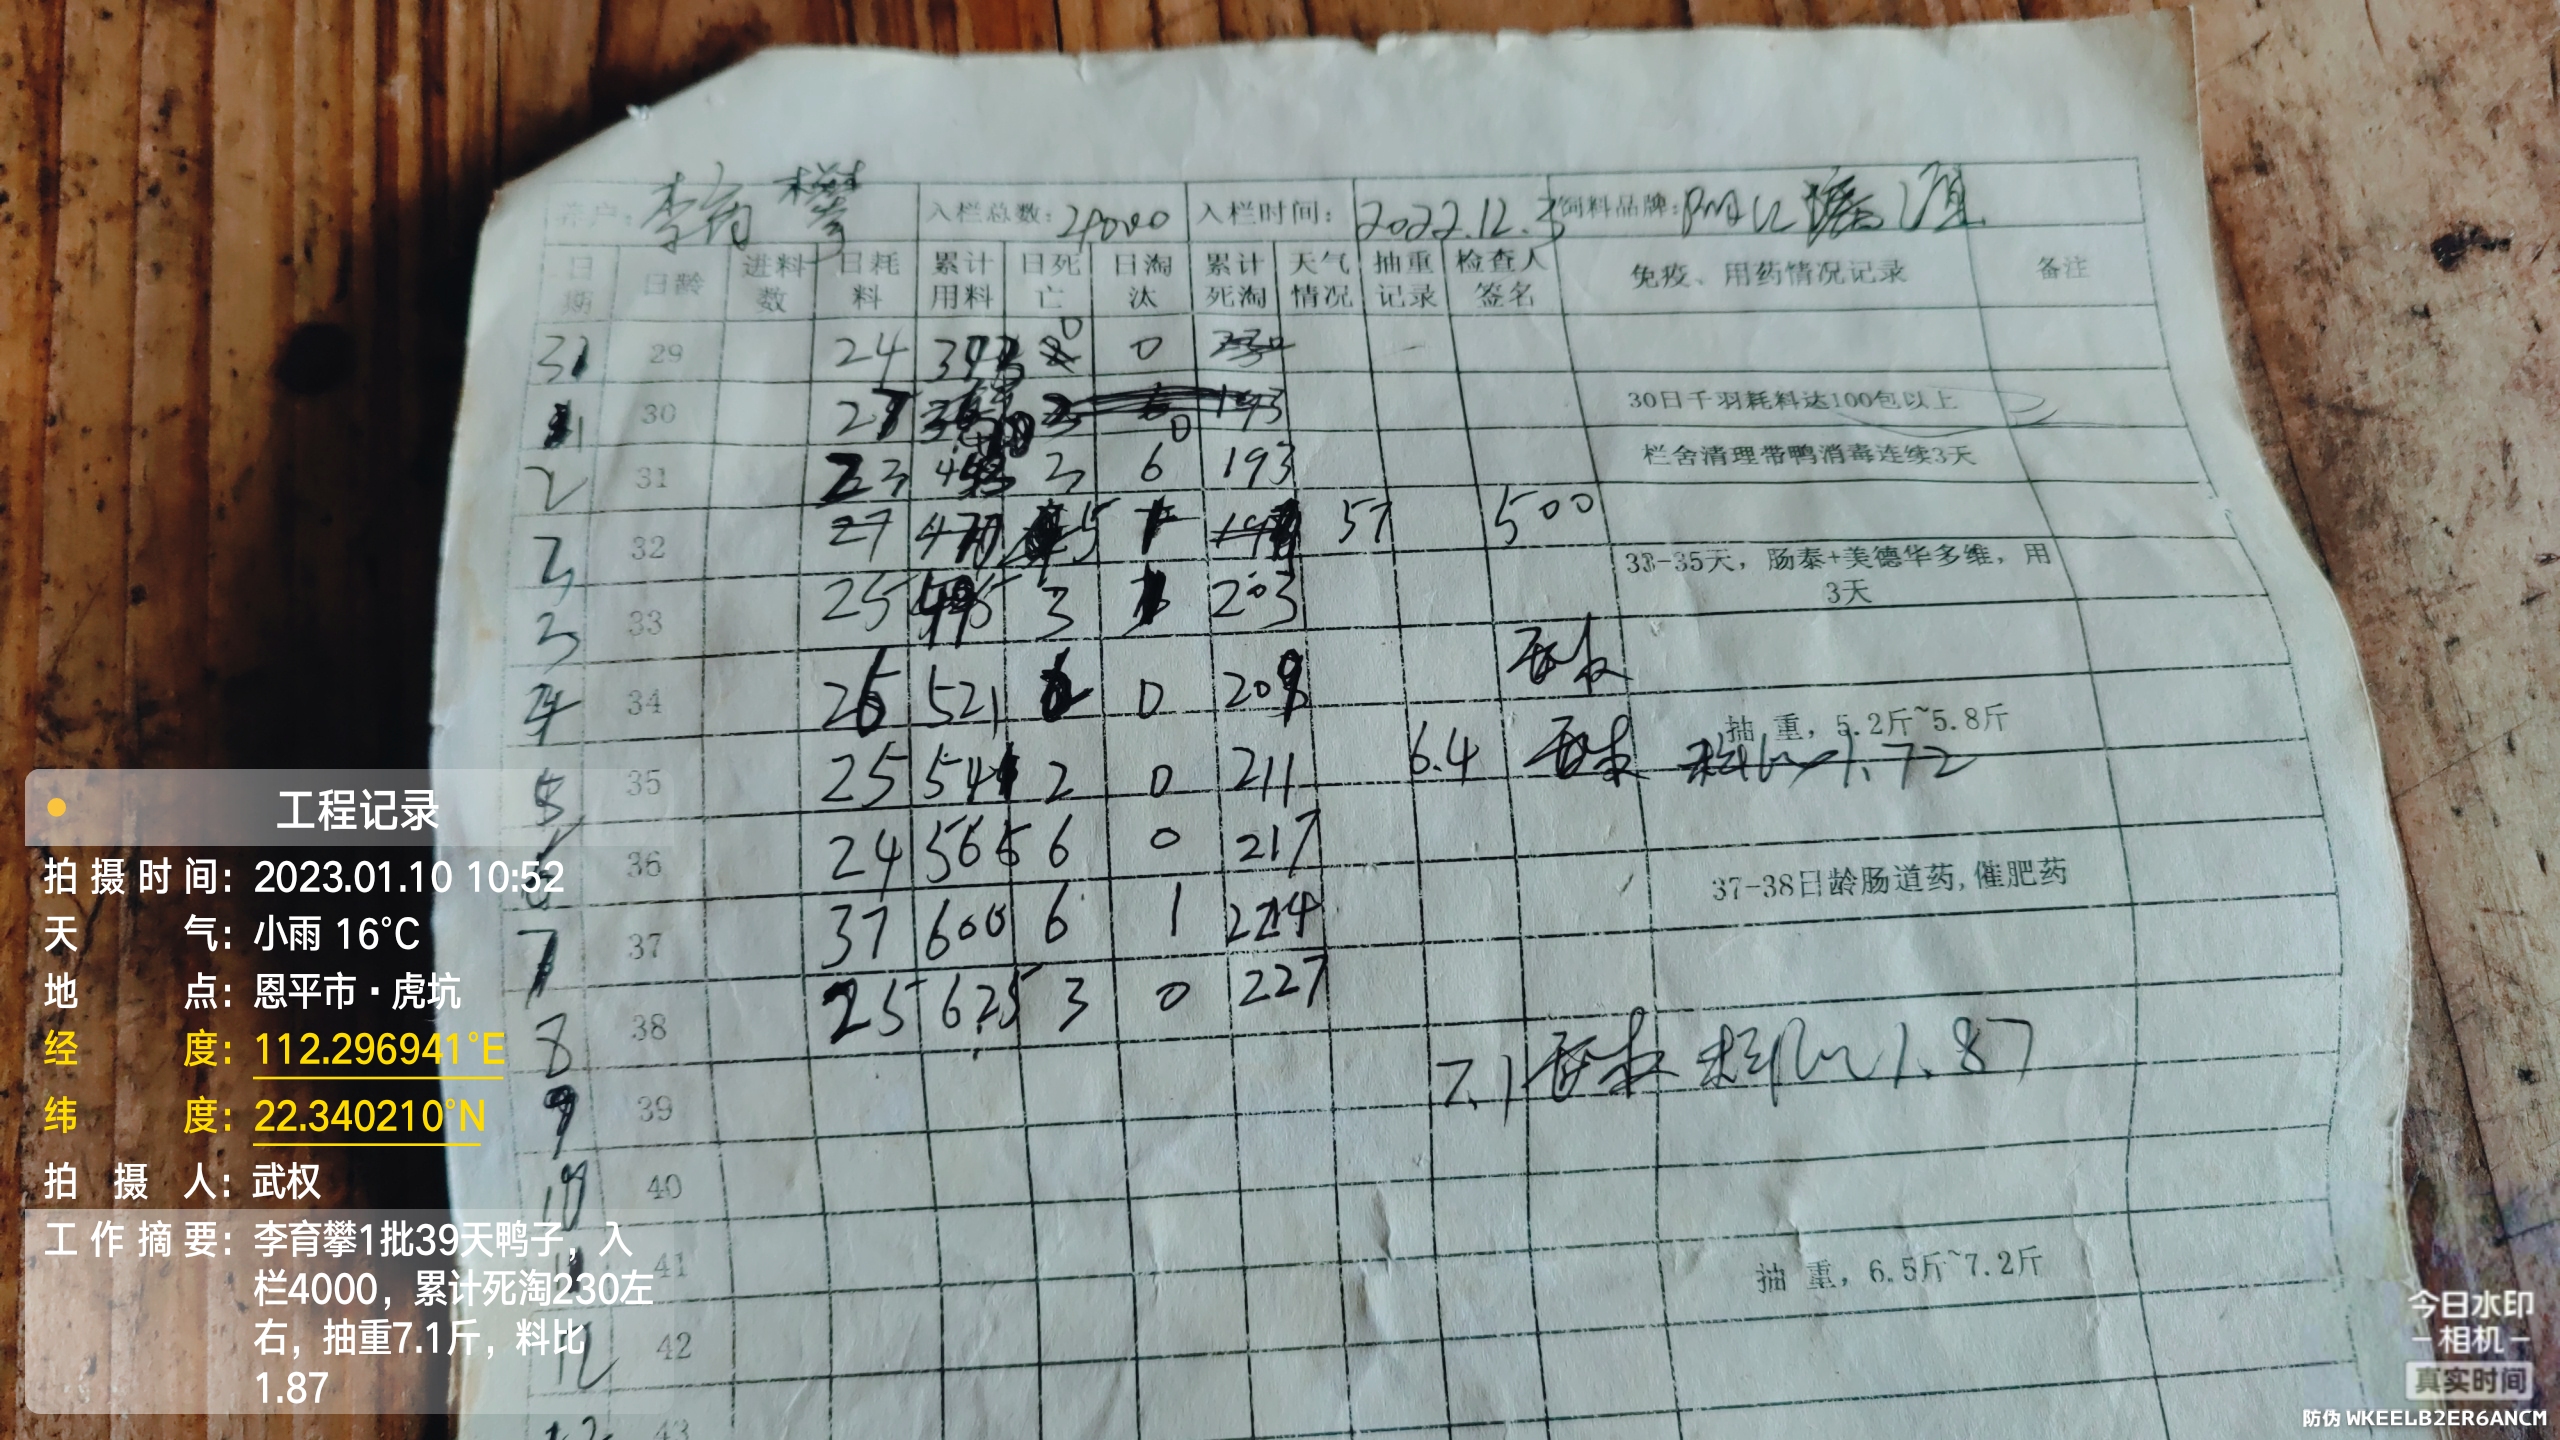 养户：李育攀 入栏总数：4000 入栏时间：2022.12.3 饲料品牌：
日期 日龄 进料数 日耗料 累计用料 日死亡 日淘汰 累计死淘 天气情况 抽重记录 检查人签名 免疫、用药情况记录 备注
31 29 24 0 0
1 30 193 30日千羽耗料达100包以上
2 31 23 6 193 栏舍清理带鸭消毒连续3天
32 27 5 57 500
3 33 25 3 203 33-35天，肠泰+美德华多维，用3天
4 34 26 521 0 209
5 35 25 2 0 211 6.4 抽 重，5.2斤~5.8斤 料比1.72
36 24 566 6 0 217
7 37 37 600 6 1 224 37-38日龄肠道药,催肥药
8 38 25 625 3 0 227
9 39 7.1 料比1.87
10 40
41 抽 重，6.5斤~7.2斤
12 42
43
工程记录
拍摄时间：2023.01.10 10:52
天气：小雨 16°C
地点：恩平市·虎坑
经度：112.296941°E
纬度：22.340210°N
拍摄人：武权
工作摘要：李育攀1批39天鸭子，入
栏4000，累计死淘230左
右，抽重7.1斤，料比
1.87
今日水印
相机
真实时间
防伪 WKEELB2ER6ANCM